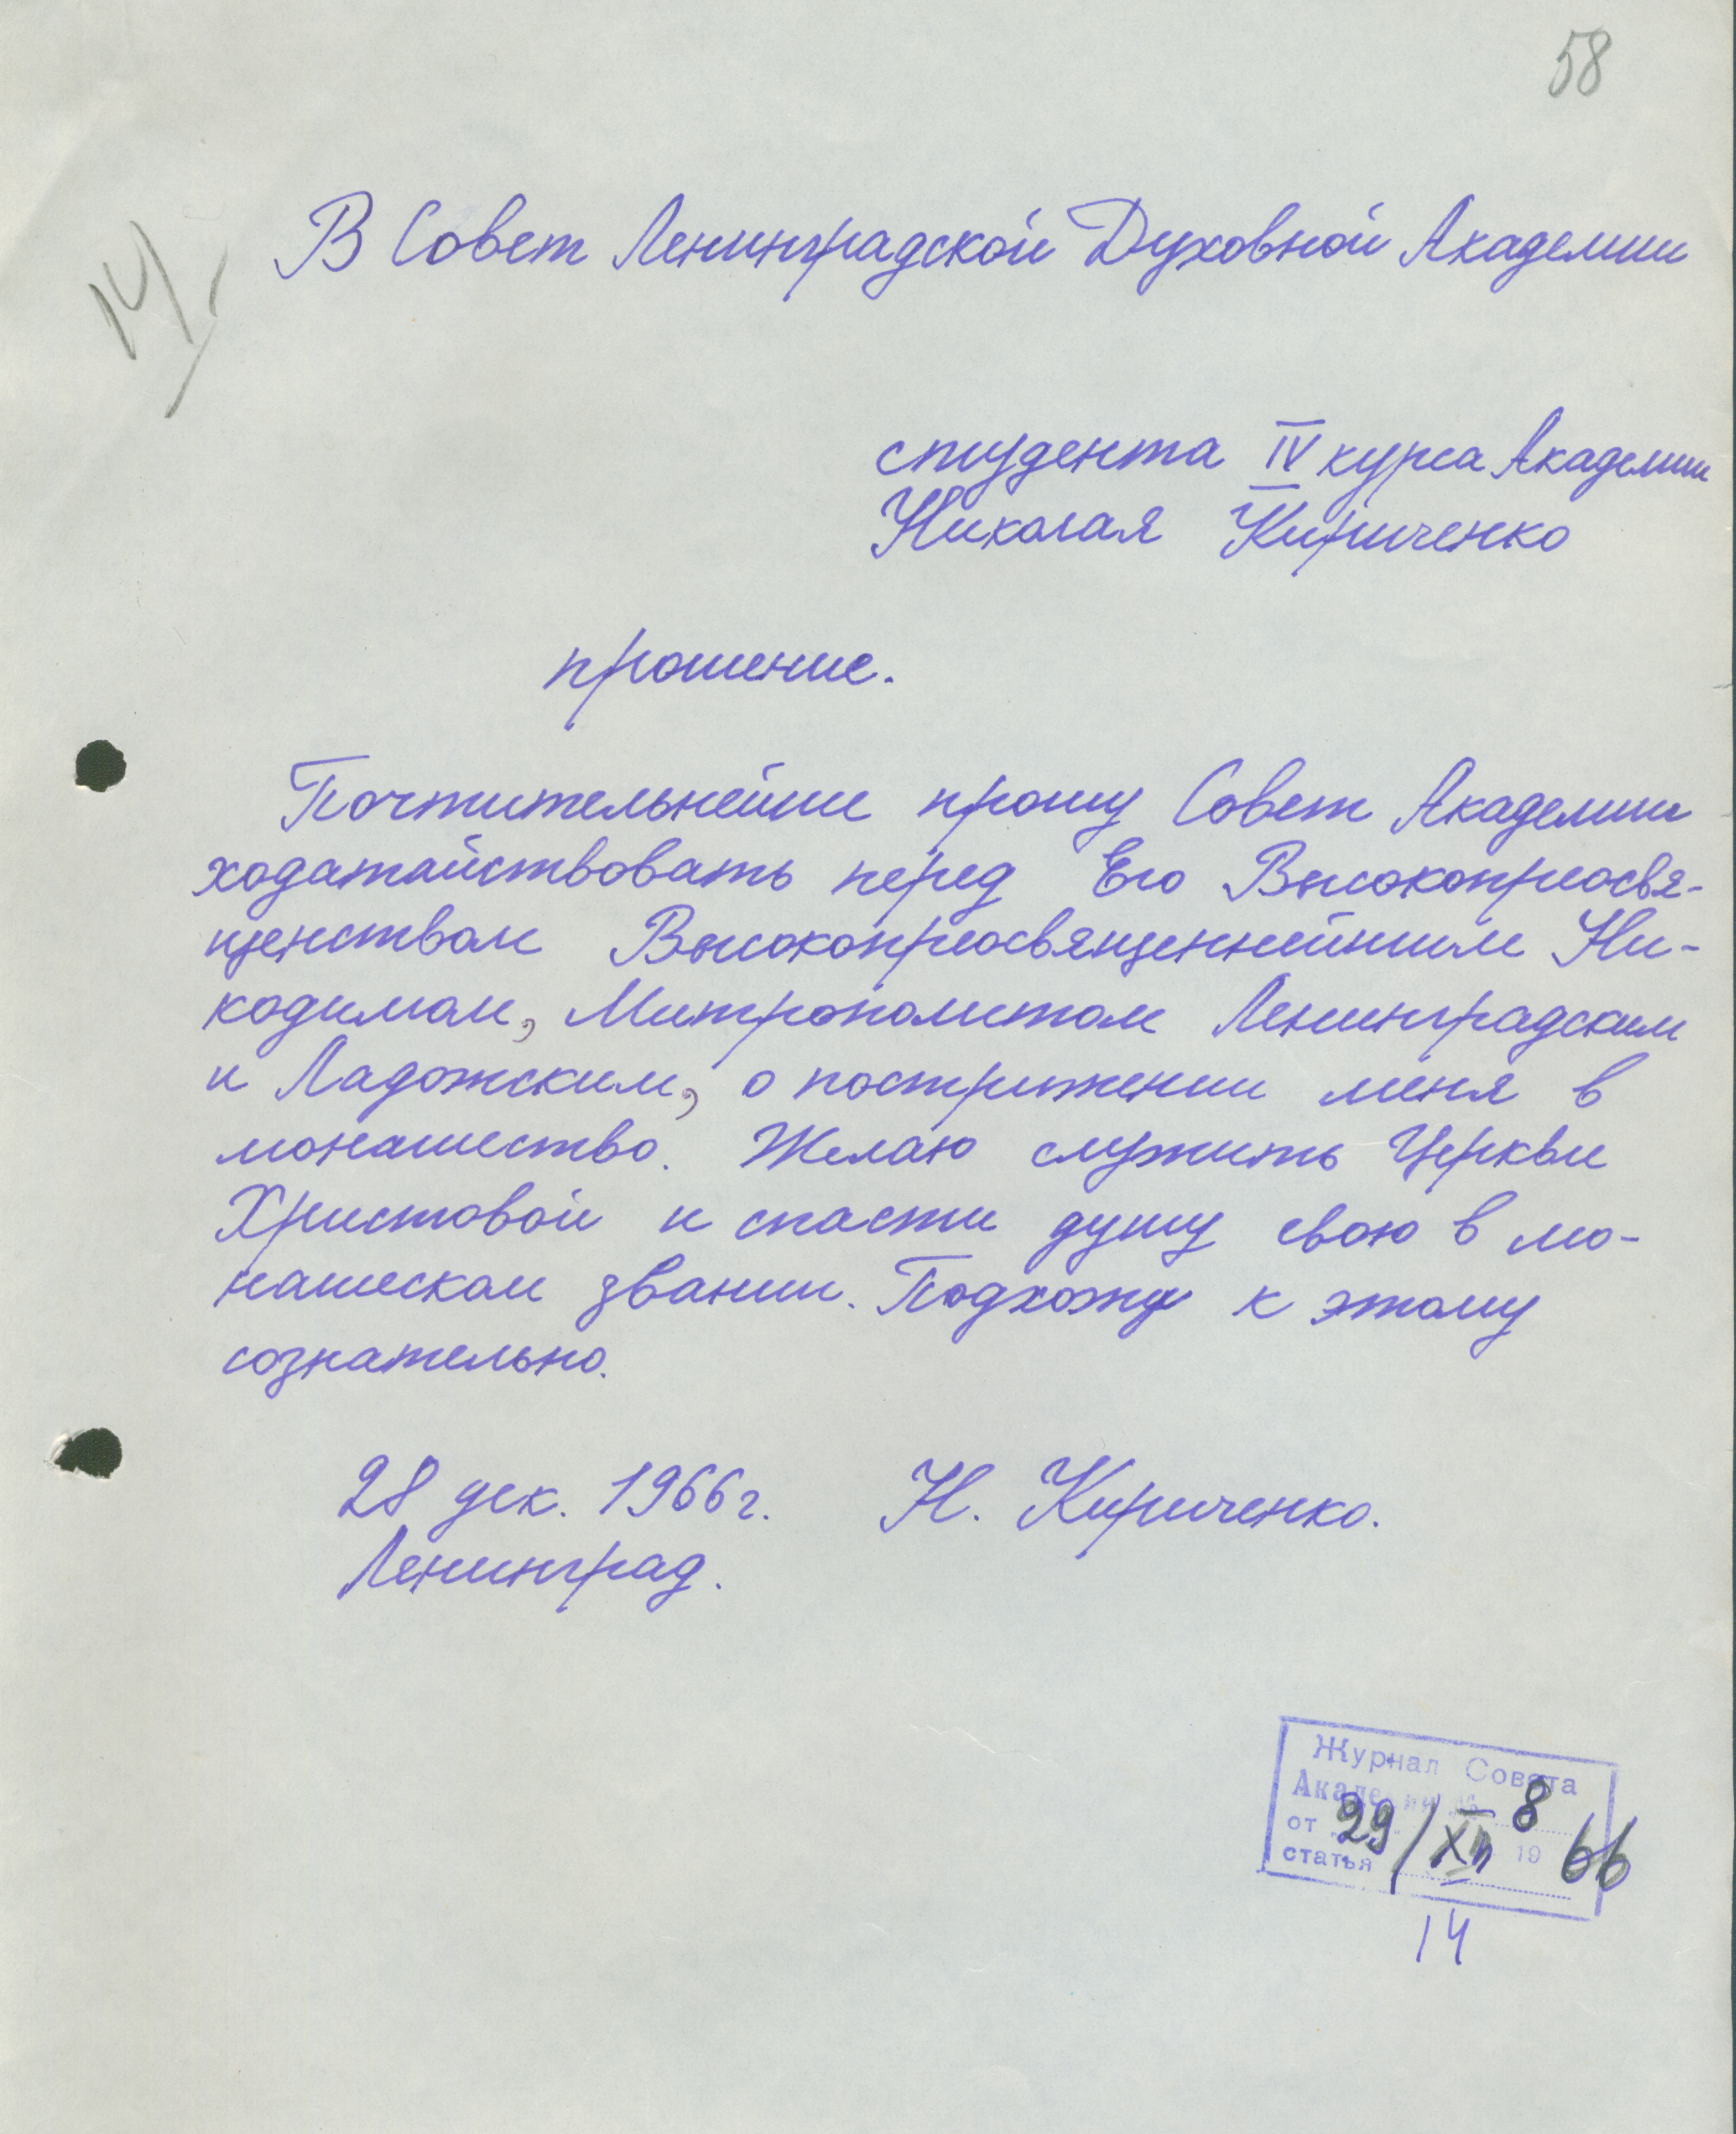 58
14,
В Совет Ленинградской Духовной Академии
студента IV курса Академии
Николая Кириченко
прошение.
Почтительнейше прошу Совет Академии
ходатайствовать перед Его Высокопреосвя-
щенством Высокопреосвященнейшим Ни-
кодимом, Митрополитом Ленинградским
и Ладожским, о пострижении меня в
монашество. Желаю служить Церкви
Христовой и спасти душу свою в мо-
нашеском звании. Подхожу к этому
сознательно.
28 дек. 1966 г. Н. Кириченко.
Ленинград.
Журнал Совета
Академии № 8
от 29/XII 1966
статья
14